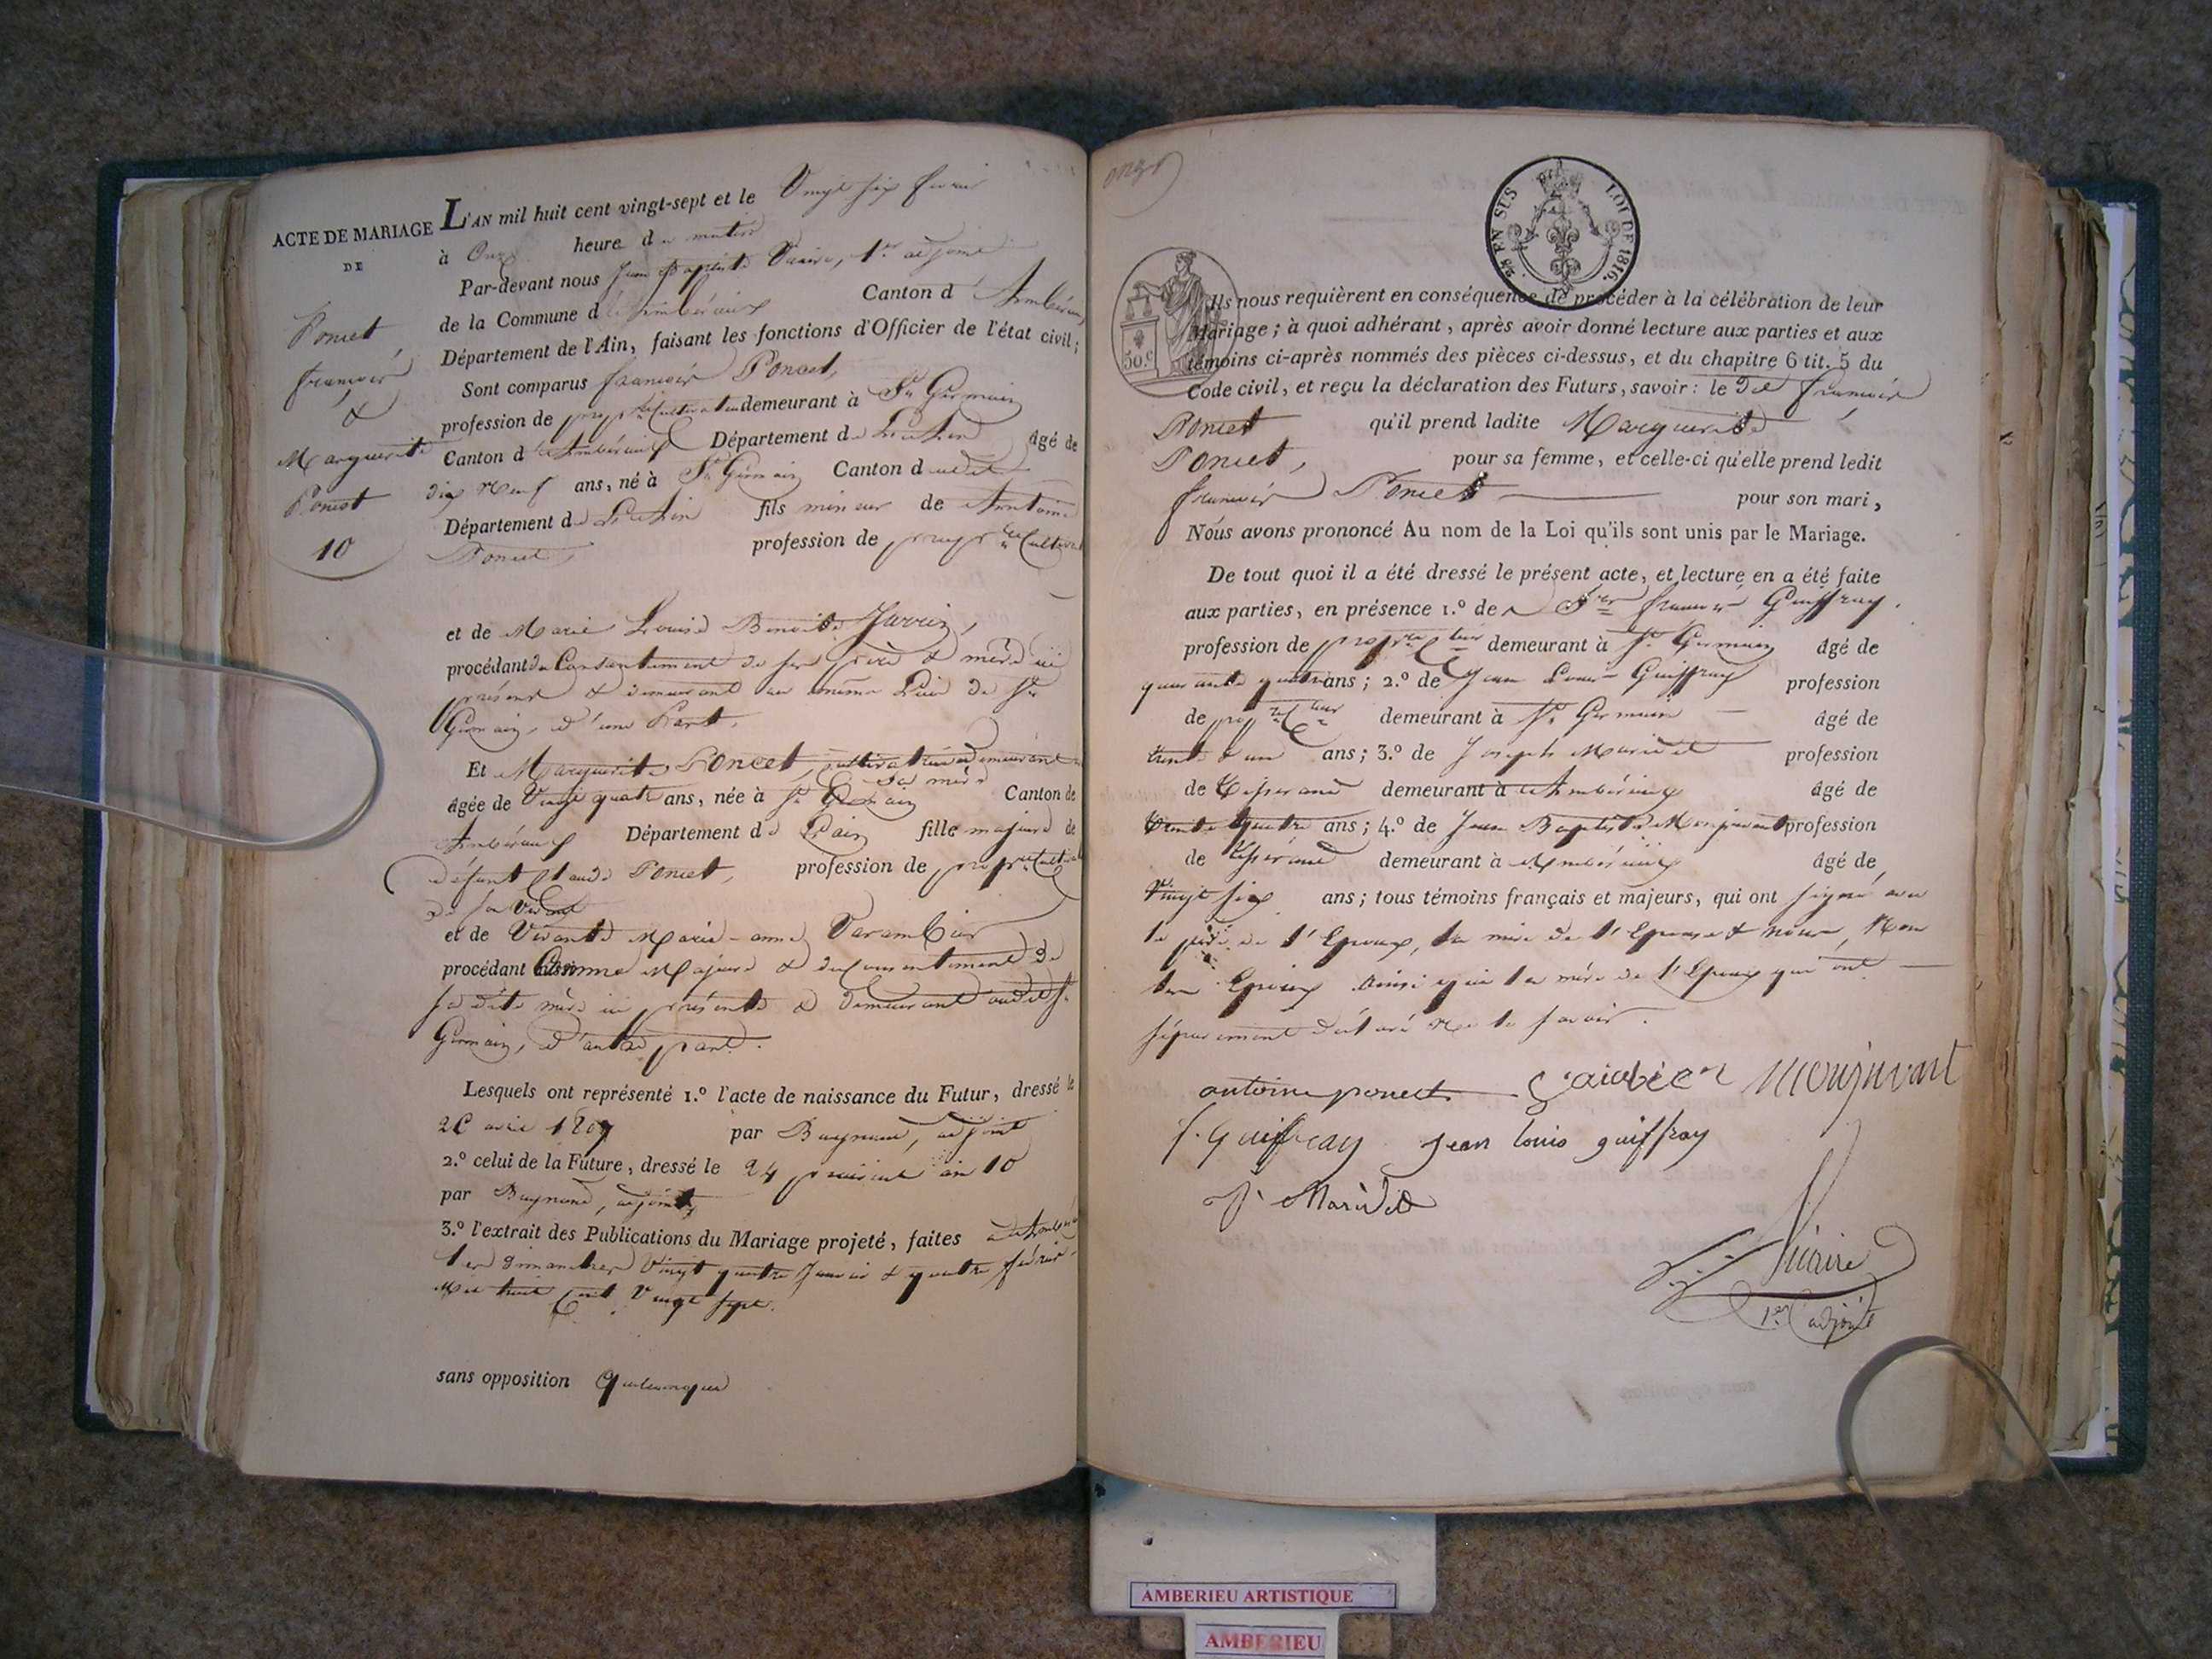 ACTE DE MARIAGE
DE
Poncet
françois
&
Marguerite
Poncet
10
L'AN mil huit cent vingt-sept et le Vingt six fevrier
à Onze heure du matin
Par-devant nous Jean Baptiste Vicaire, 1er adjoint
de la Commune d'Ambérieux Canton d'Ambérieux
Département de l'Ain, faisant les fonctions d'Officier de l'état civil;
Sont comparus françois Poncet,
profession de propre Cultivateur demeurant à St Germain
Canton d'Ambérieux Département de L'Ain âgé de
dix Neuf ans, né à St Germain Canton dudit
Département de L'Ain fils mineur de Antoine
Poncet, profession de propre Cultivat
et de Marie Louise Benoite Jarrin,
procédant du Consentement de ses père & mère ici
présens & demeurant au même Lieu de St
Germain, d'une Part,
Et Marguerite Poncet, cultivatrice demeurant
sa mère
âgée de Vingt quatre ans, née à St Germain Canton de
Ambérieux Département de L'ain fille majeure de
défunt Claude Poncet, profession de propre Cultivat
de son Vivant
et de Vivante Marie-anne Varambier
procédant Comme Majeure & du consentement de
sa dite mère ici présente & demeurant audit St
Germain, d'autre part.
Lesquels ont représenté 1.º l'acte de naissance du Futur, dressé le
par adjoint
2.º celui de la Future, dressé le 24 prairial an 10
par adjoint
3.º l'extrait des Publications du Mariage projeté, faites
les dimanches Vingt quatre Janvier & quatre février
Mil huit Cent Vingt sept.
sans opposition Quelconque
onze
28 EN SUS LOI DE 1816.
50.c
Ils nous requièrent en conséquence de procéder à la célébration de leur
Mariage; à quoi adhérant, après avoir donné lecture aux parties et aux
témoins ci-après nommés des pièces ci-dessus, et du chapitre 6 tit. 5 du
Code civil, et reçu la déclaration des Futurs, savoir: le dit françois
Poncet qu'il prend ladite Marguerite
Poncet, pour sa femme, et celle-ci qu'elle prend ledit
françois Poncet pour son mari,
Nous avons prononcé Au nom de la Loi qu'ils sont unis par le Mariage.
De tout quoi il a été dressé le présent acte, et lecture en a été faite
aux parties, en présence 1.º de Sr françois Guiffray,
profession de propre Cteur demeurant à St Germain âgé de
quarante quatre ans; 2.º de Jean Louis Guiffray profession
de propre Cteur demeurant à St Germain âgé de
trente & un ans; 3.º de Joseph Maridet profession
de Tisserand demeurant à Ambérieux âgé de
trente quatre ans; 4.º de Jean Baptiste Monjuvant profession
de Tisserand demeurant à Ambérieux âgé de
Vingt six ans; tous témoins français et majeurs, qui ont signé avec
le père de l'Epoux, la mère de l'Epouse & nous, Non
les Epoux ainsi que la mère de l'Epoux qui ont
séparement déclaré Ne le savoir.
antoine poncet monjuvant
f. guiffray Jean louis guiffray
J. Maridet
Vicaire
1er adjoint
AMBERIEU ARTISTIQUE
AMBERIEU